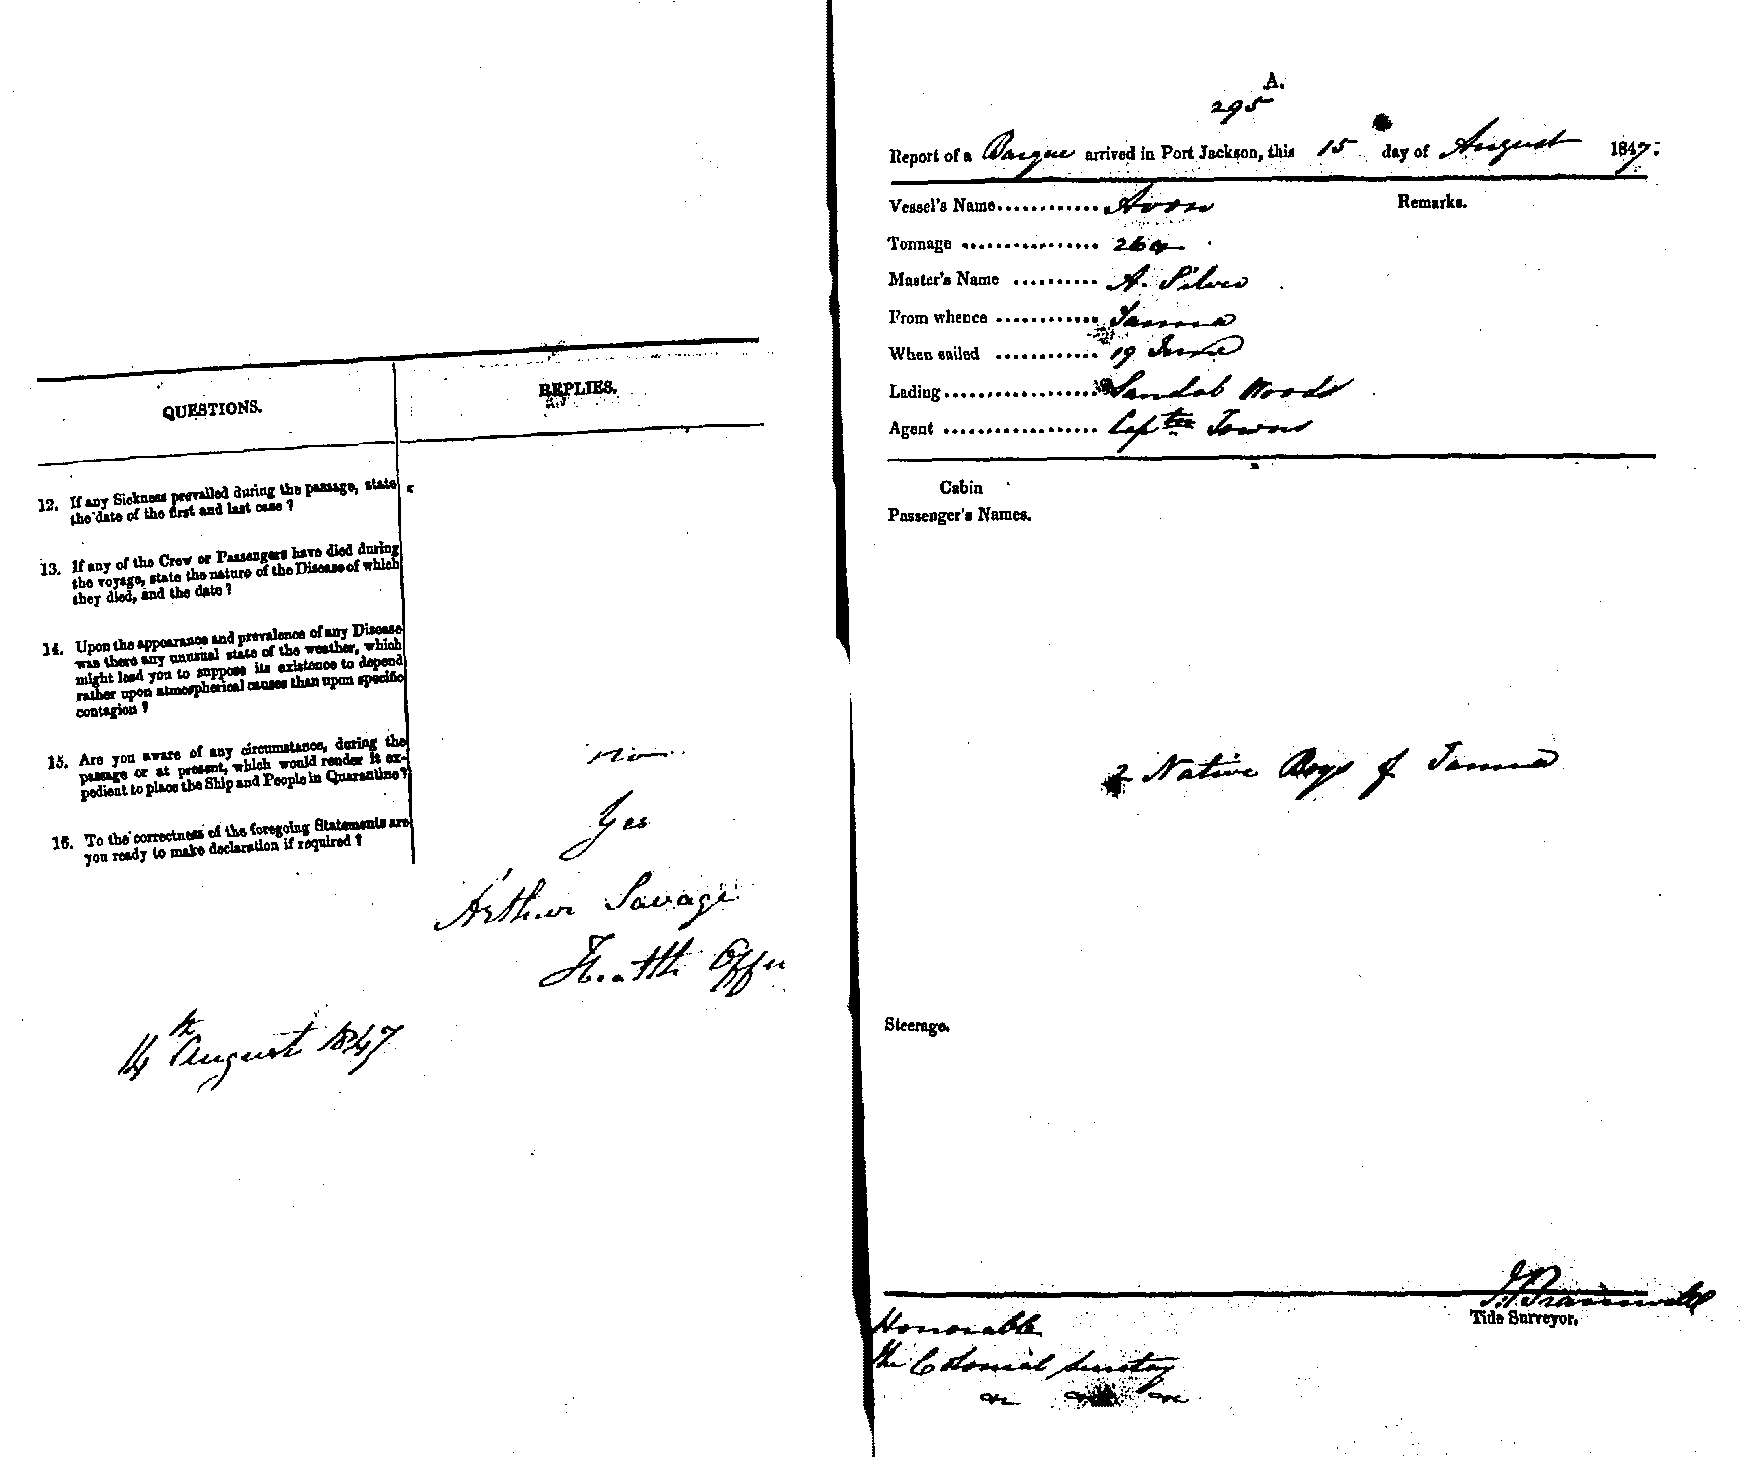 QUESTIONS.
REPLIES.
12. If any Sickness prevailed during the passage, state
the date of the first and last case ?
13. If any of the Crew or Passengers have died during
the voyage, state the nature of the Disease of which
they died, and the date ?
14. Upon the appearance and prevalence of any Disease
was there any unusual state of the weather, which
might lead you to suppose its existence to depend
rather upon atmospherical causes than upon specific
contagion ?
15. Are you aware of any circumstance, during the
passage or at present, which would render it ex-
pedient to place the Ship and People in Quarantine ?
no
16. To the correctness of the foregoing Statements are
you ready to make declaration if required ?
Yes
Arthur Savage
Health Offr
14th August 1847
A.
295
Report of a Barque arrived in Port Jackson, this 15 day of August 1847.
Vessel's Name............ Avon
Remarks.
Tonnage ................
Master's Name .......... A.
From whence ............ Tanna
When sailed ............ 19 June
Lading.................. Sandal Wood
Agent .................. Towns
Cabin
Passenger's Names.
2 Native Boys of Tanna
Steerage.
Tide Surveyor.
Honorable
the Colonial Secretary
&c &c &c